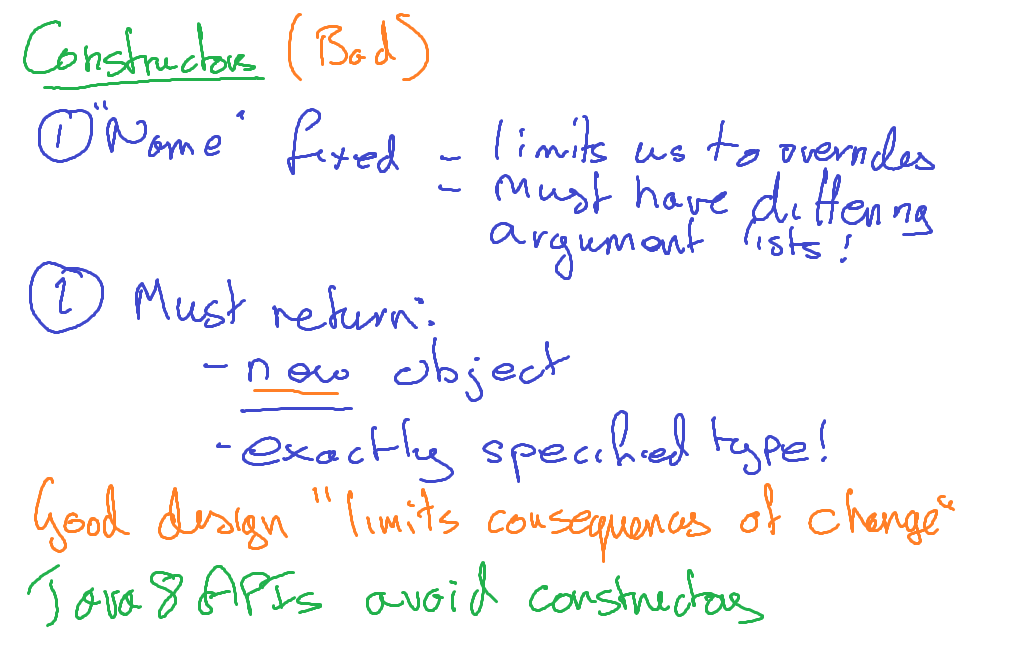 Constructors (Bad)
① "Name" fixed - limits us to overrides
- Must have differing
argument lists!
② Must return:
- new object
- exactly specified type!
Good design "limits consequences of change"
Java 8 APIs avoid constructors